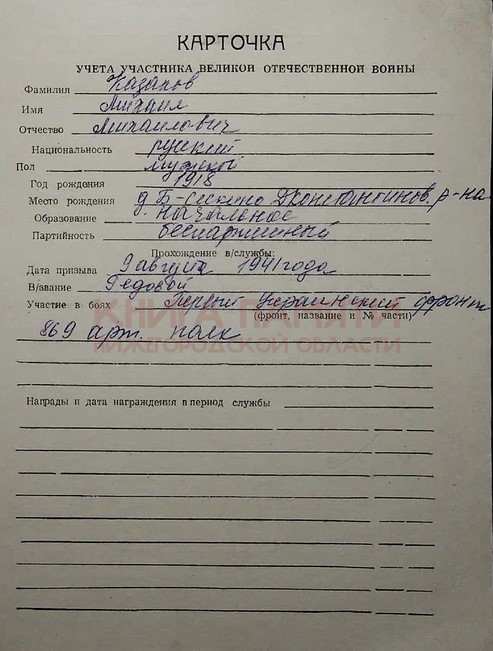 КАРТОЧКА
УЧЕТА УЧАСТНИКА ВЕЛИКОЙ ОТЕЧЕСТВЕННОЙ ВОЙНЫ
Фамилия Казаков
Имя Михаил
Отчество Михаилович
Национальность руский
Пол мужской
Год рождения 1918
Место рождения д. Б-Сескино Дконстантинов. р-на
Образование начальное
Партийность беспартийный
Прохождение в/службы:
Дата призыва 9 августа 1941 года
В/звание Редовой
Участие в боях Первый Украинский фронт
(фронт, название и № части)
869 арт. полк
КНИГА ПАМЯТИ
НИЖЕГОРОДСКОЙ ОБЛАСТИ
Награды и дата награждения в период службы